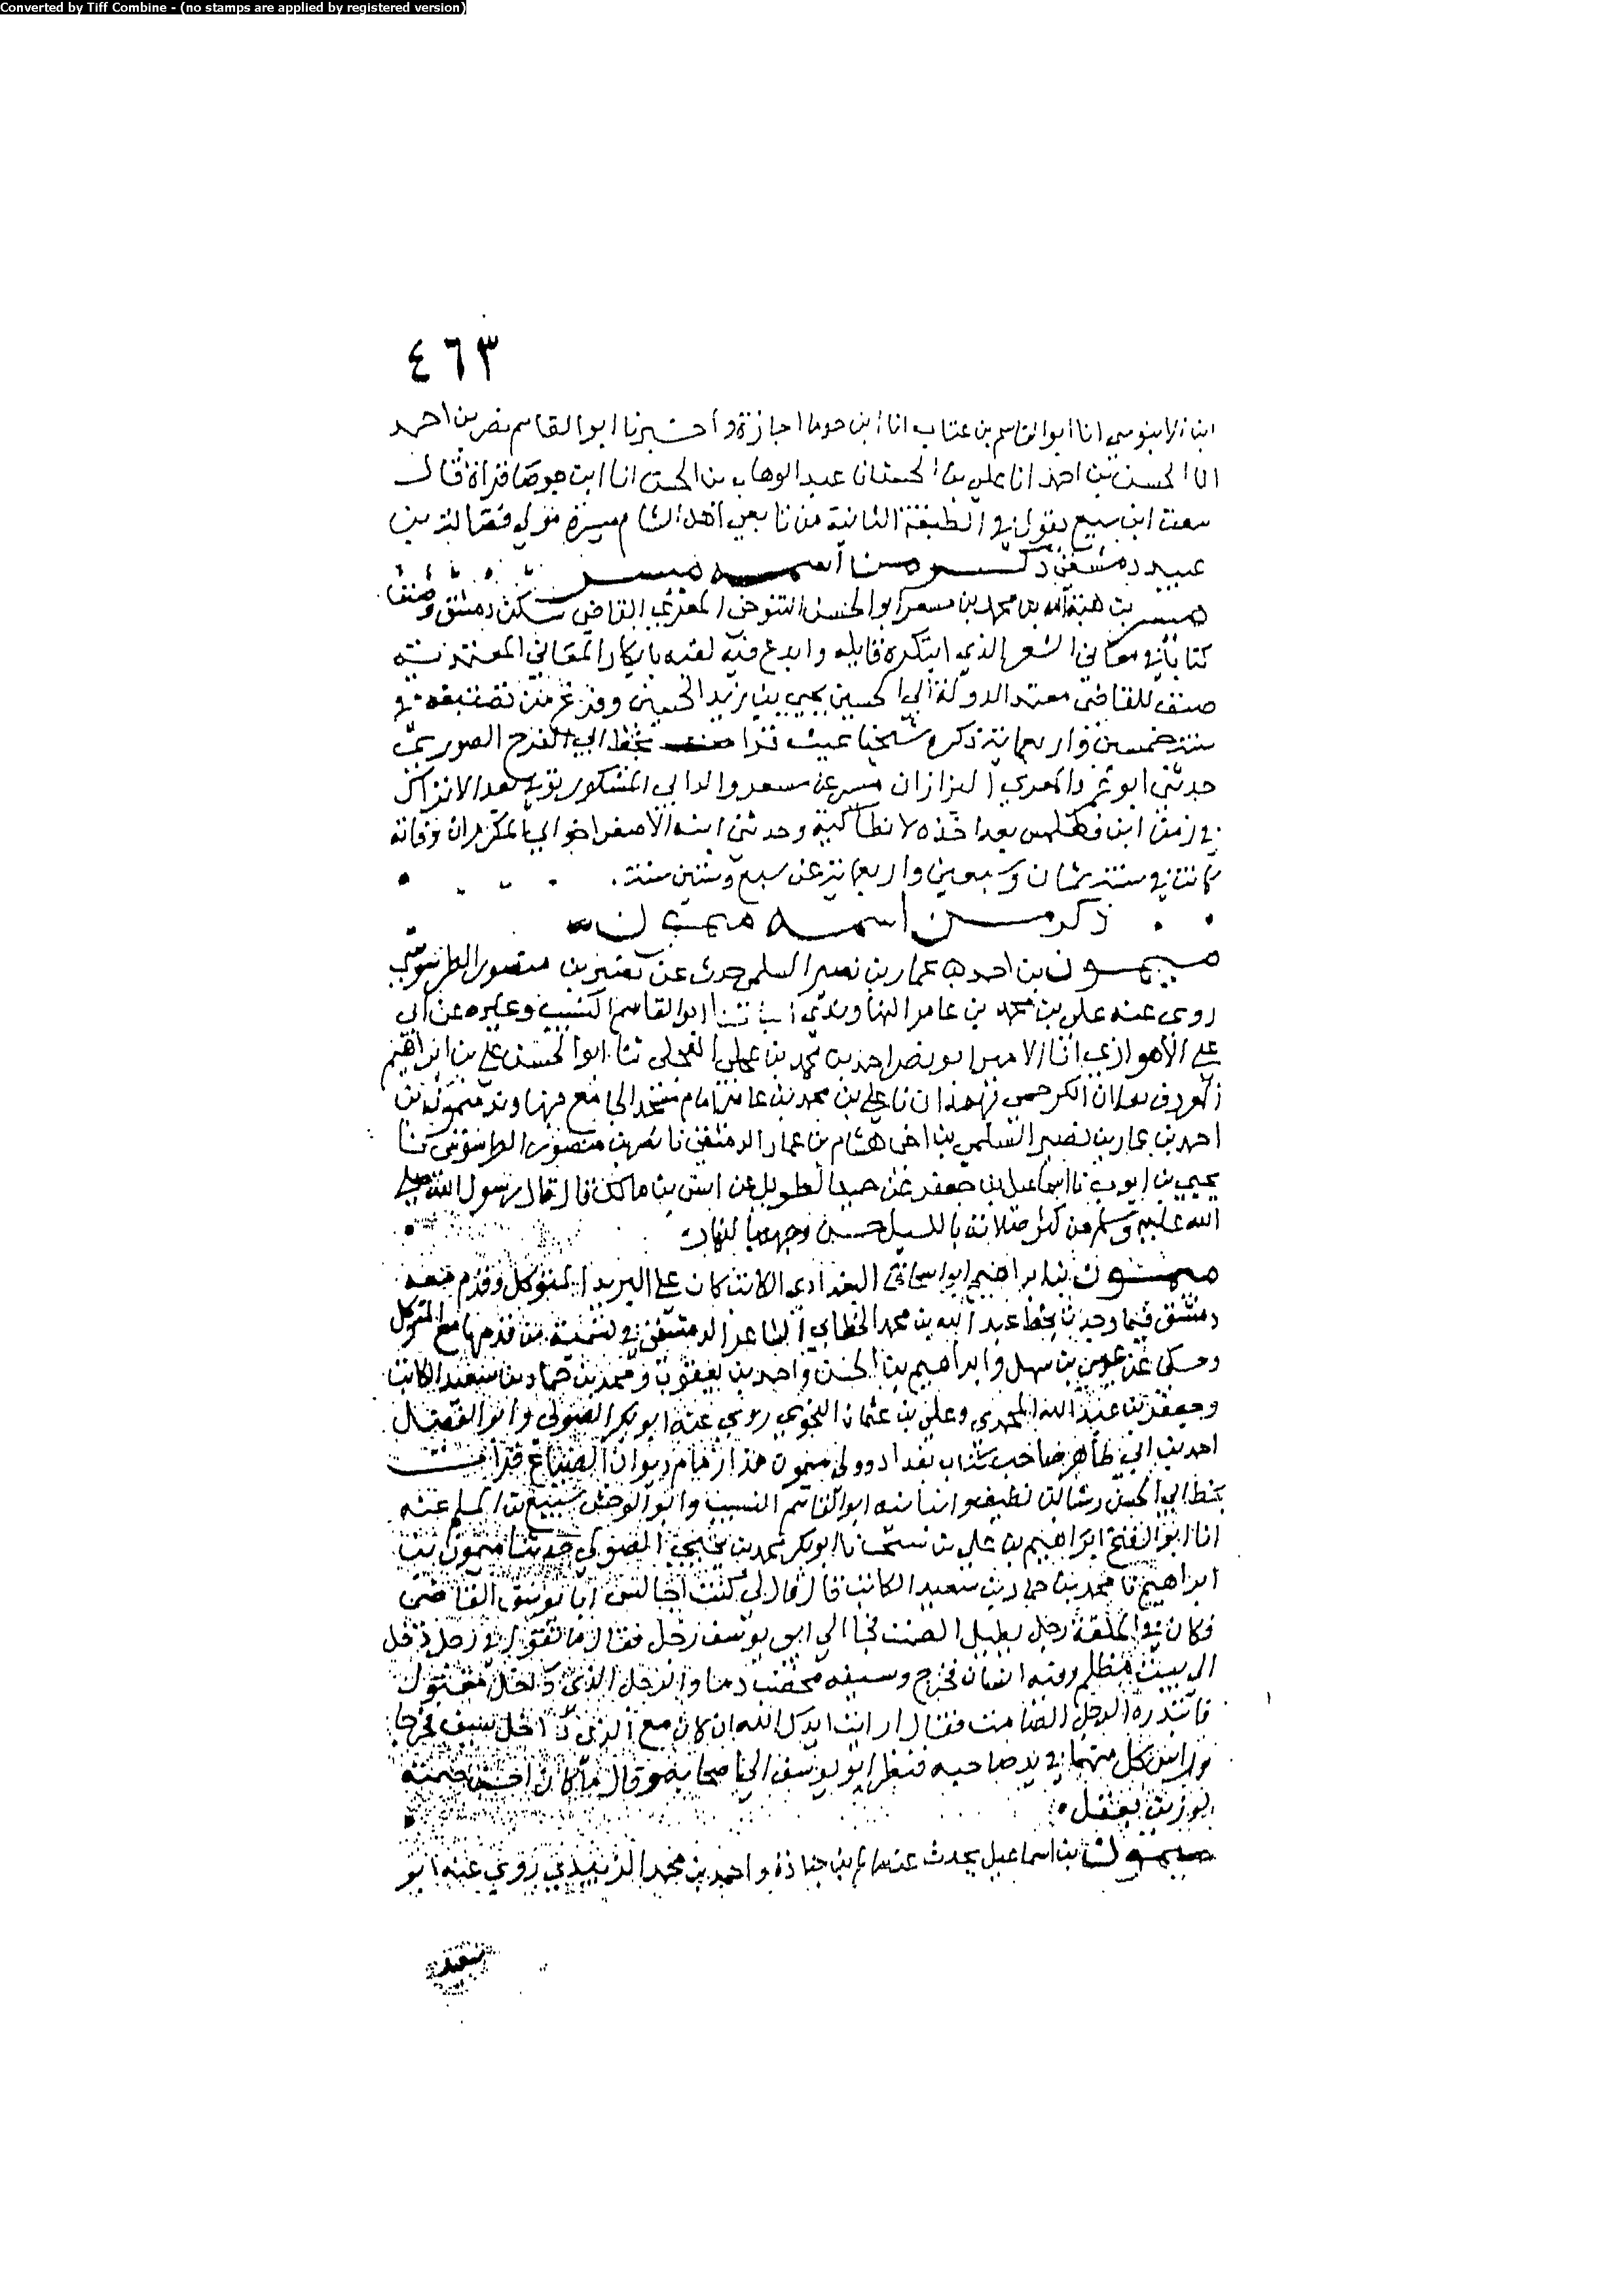 Converted by Tiff Combine - (no stamps are applied by registered version)
٤٦٣
ابن الابنوسي انا ابو القاسم بن عتاب انا ابن جوصا اجازة واخبرنا ابو القاسم نصر بن احمد
انا الحسن بن احمد انا علي بن الحسن انا عبد الوهاب بن الحسن انا ابن جوصا قراة قال
سمعت ابن سميع يقول في الطبقة الثانية من تابعي اهل الشام ميسرة مولي فضالة بن
عبيد دمشقي ذكر من اسمه ميسر
ميسر بن هبة الله بن محمد بن مسعر ابو الحسن التنوخي المعري القاضي سكن دمشق وصنف
كتابا في معاني الشعر الذي ابتكره قايله وابدع فيه لقبه بابكار المعاني المعتمدية
صنفه للقاضي معتمد الدولة ابي الحسين يحيي بن زيد الحسيني وفرغ من تصنيفه في
سنة خمسين واربعماية ذكره شيخنا غيث قرا بخط ابي الفرج الصوري
حدثني ابو المعري البزاز ان ميسر بن مسعر والد ابي المشكور توفي بعد الاتراك
في زمن ابن قطلمس بعد اخذه لانطاكية وحدثني ابنه الاصغر اخو ابي المكرم ان وفاته
كانت في سنة ثمان وسبعين واربعماية عن سبع وستين سنة
ذكر من اسمه ميمون
ميمون بن احمد بن عمار بن نصير السلمي حدث عن نصر بن منصور الطرسوسي
روي عنه علي بن محمد بن عامر النهاوندي انبانا ابو القاسم النسيب وغيره عن ابي
علي الاهوازي انا الامير ابو نصر احمد بن محمد بن علي العجلي ثنا ابو الحسن علي بن ابراهيم
المعروف بعلان الكرجي بهمذان نا علي بن محمد بن عامر امام مسجد الجامع بنهاوند ميمون بن
احمد بن عمار بن نصير السلمي بن اخي هشام بن عمار الدمشقي نا نصر بن منصور الطرسوسي نا
يحيي بن ايوب نا اسماعيل بن جعفر عن حميد الطويل عن انس بن مالك قال قال رسول الله صلي
الله عليه وسلم من كثر صلاته بالليل حسن وجهه بالنهار
ميمون بن ابراهيم ابو اسحاق البغدادي الكاتب كان علي البريد المتوكل وقدم معه
دمشق فيما وجدت بخط عبد الله بن محمد الخطابي الشاعر الدمشقي في تسمية من قدمها مع المتوكل
وحكي عن بن سهل وابراهيم بن الحسن واحمد بن يعقوب ومحمد بن حماد بن سعيد الكاتب
وجعفر بن عبد الله المحمدي وعلي بن عثمان النحوي روي عنه ابو بكر الصولي وابو الفضل
احمد بن ابي طاهر صاحب كتاب بغداد وولي ميمون هذا زمام ديوان الضياع قرات
بخط ابي الحسن رشا بن نظيف وانبانيه ابو القاسم النسيب وابو الوحش سبيع بن المسلم عنه
انا ابو الفتح ابراهيم بن علي بن نا ابو بكر محمد بن يحيي الصولي حدثنا ميمون بن
ابراهيم نا محمد بن حماد بن سعيد الكاتب قال قال لي كنت اجالس ابا يوسف القاضي
فكان في الحلقة رجل يطيل الصمت فجا الي ابي يوسف رجل فقال ما تقول في رجل دخل
الي بيت مظلم وفيه انسان فخرج وسيفه مختضب دما والرجل الذي داخل مقتول
فابتدره الرجل الصامت فقال ارايت ايدك الله ان كان مع الذي داخل سيف فخرجا
وراس كل منهما في يد صاحبه فنظر ابو يوسف الي اصحابه وقال ما كان احسن صمته
لو زين بعقل
ميمون بن اسماعيل يحدث عن بن جنادة واحمد بن محمد الزبيدي روي عنه ابو
سعيد